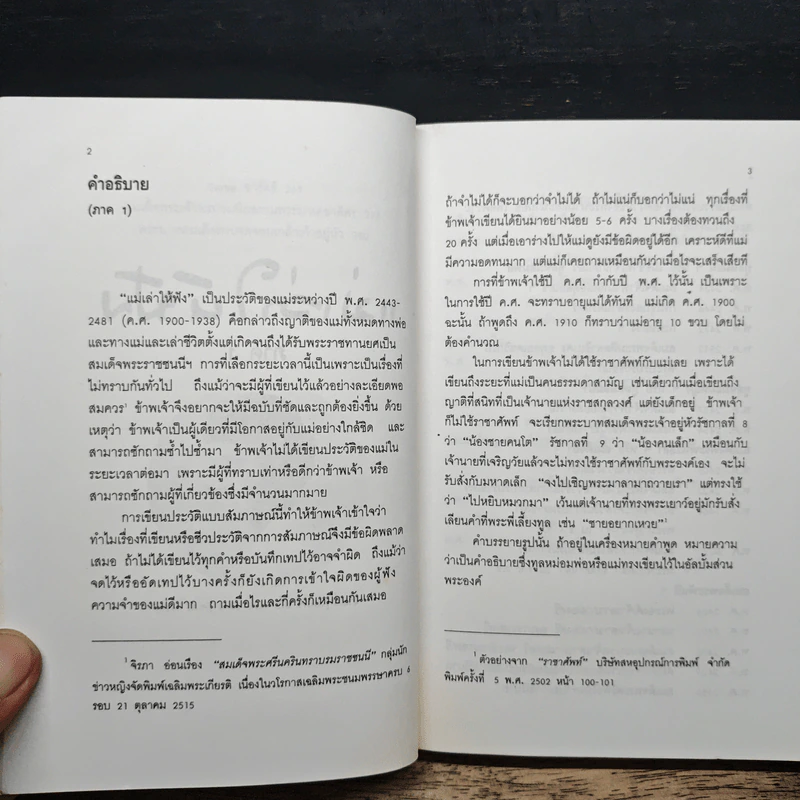 2
คำอธิบาย
(ภาค 1)
"แม่เล่าให้ฟัง" เป็นประวัติของแม่ระหว่างปี พ.ศ. 2443-
2481 (ค.ศ. 1900-1938) คือกล่าวถึงญาติของแม่ทั้งหมดทางพ่อ
และทางแม่และเล่าชีวิตตั้งแต่เกิดจนถึงได้รับพระราชทานยศเป็น
สมเด็จพระราชชนนีฯ การที่เลือกระยะเวลานี้เป็นเพราะเป็นเรื่องที่
ไม่ทราบกันทั่วไป ถึงแม้ว่าจะมีผู้ที่เขียนไว้แล้วอย่างละเอียดพอ
สมควร¹ ข้าพเจ้าจึงอยากจะให้มีฉบับที่ชัดและถูกต้องยิ่งขึ้น ด้วย
เหตุว่า ข้าพเจ้าเป็นผู้เดียวที่มีโอกาสอยู่กับแม่อย่างใกล้ชิด และ
สามารถซักถามซ้ำไปซ้ำมา ข้าพเจ้าไม่ได้เขียนประวัติของแม่ใน
ระยะเวลาต่อมา เพราะมีผู้ที่ทราบเท่าหรือดีกว่าข้าพเจ้า หรือ
สามารถซักถามผู้ที่เกี่ยวข้องซึ่งมีจำนวนมากมาย
การเขียนประวัติแบบสัมภาษณ์นี้ทำให้ข้าพเจ้าเข้าใจว่า
ทำไมเรื่องที่เขียนหรือชีวประวัติจากการสัมภาษณ์จึงมีข้อผิดพลาด
เสมอ ถ้าไม่ได้เขียนไว้ทุกคำหรือบันทึกเทปไว้อาจจำผิด ถึงแม้ว่า
จดไว้หรืออัดเทปไว้บางครั้งก็ยังเกิดการเข้าใจผิดของผู้ฟัง
ความจำของแม่ดีมาก ถามเมื่อไรและกี่ครั้งก็เหมือนกันเสมอ
¹ จิรภา อ่อนเรือง "สมเด็จพระศรีนครินทราบรมราชชนนี" กลุ่มนัก
ข่าวหญิงจัดพิมพ์เฉลิมพระเกียรติ เนื่องในวโรกาสเฉลิมพระชนมพรรษาครบ 6
รอบ 21 ตุลาคม 2515
3
ถ้าจำไม่ได้ก็จะบอกว่าจำไม่ได้ ถ้าไม่แน่ก็บอกว่าไม่แน่ ทุกเรื่องที่
ข้าพเจ้าเขียนได้ยินมาอย่างน้อย 5-6 ครั้ง บางเรื่องต้องทวนถึง
20 ครั้ง แต่เมื่อเอาร่างไปให้แม่ดูยังมีข้อผิดอยู่ได้อีก เคราะห์ดีที่แม่
มีความอดทนมาก แต่แม่ก็เคยถามเหมือนกันว่าเมื่อไรจะเสร็จเสียที
การที่ข้าพเจ้าใช้ปี ค.ศ. กำกับปี พ.ศ. ไว้นั้น เป็นเพราะ
ในการใช้ปี ค.ศ. จะทราบอายุแม่ได้ทันที แม่เกิด ค.ศ. 1900
ฉะนั้น ถ้าพูดถึง ค.ศ. 1910 ก็ทราบว่าแม่อายุ 10 ขวบ โดยไม่
ต้องคำนวณ
ในการเขียนข้าพเจ้าไม่ได้ใช้ราชาศัพท์กับแม่เลย เพราะได้
เขียนถึงระยะที่แม่เป็นคนธรรมดาสามัญ เช่นเดียวกันเมื่อเขียนถึง
ญาติที่สนิทที่เป็นเจ้านายแห่งราชสกุลวงศ์ แต่ยังเด็กอยู่ ข้าพเจ้า
ก็ไม่ใช้ราชาศัพท์ จะเรียกพระบาทสมเด็จพระเจ้าอยู่หัวรัชกาลที่ 8
ว่า "น้องชายคนโต" รัชกาลที่ 9 ว่า "น้องคนเล็ก" เหมือนกับ
เจ้านายที่เจริญวัยแล้วจะไม่ทรงใช้ราชาศัพท์กับพระองค์เอง จะไม่
รับสั่งกับมหาดเล็ก "จงไปเชิญพระมาลามาถวายเรา" แต่ทรงใช้
ว่า "ไปหยิบหมวกมา" เว้นแต่เจ้านายที่ทรงพระเยาว์อยู่มักรับสั่ง
เลียนคำที่พระพี่เลี้ยงทูล เช่น "ชายอยากเหวย"¹
คำบรรยายรูปนั้น ถ้าอยู่ในเครื่องหมายคำพูด หมายความ
ว่าเป็นคำอธิบายซึ่งทูลหม่อมพ่อหรือแม่ทรงเขียนไว้ในอัลบั้มส่วน
พระองค์
¹ ตัวอย่างจาก "ราชาศัพท์" บริษัทสหอุปกรณ์การพิมพ์ จำกัด
พิมพ์ครั้งที่ 5 พ.ศ. 2502 หน้า 100-101